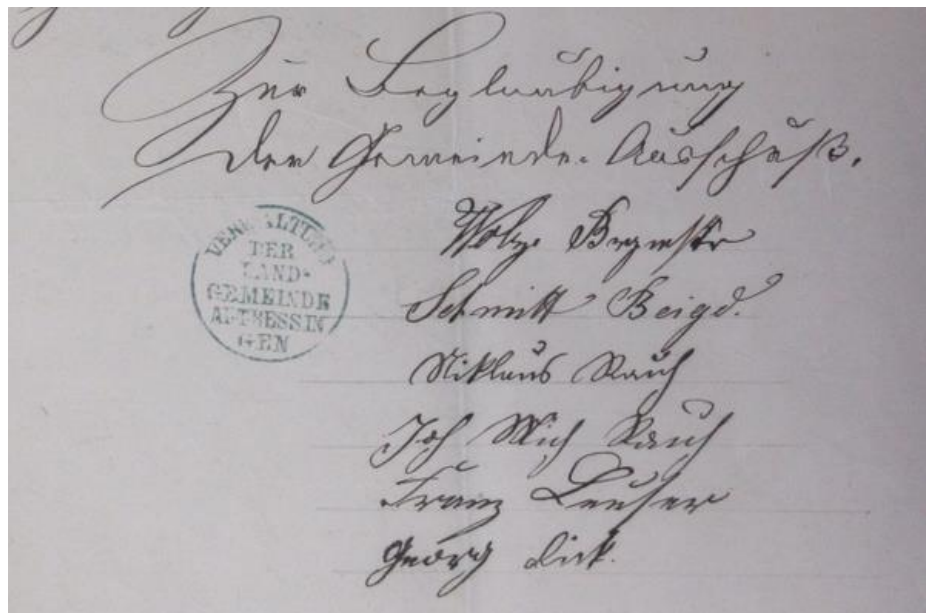 Zur Beglaubigung
Der Gemeinde-Ausschuß.
VERWALTUNG
DER
LAND-
GEMEINDE
ALTBESSIN
GEN
Wolz Brgmstr
Schmitt Beigd.
Niklaus Rauch
Joh Mich Rauch
Franz Leuser
Georg Dick.